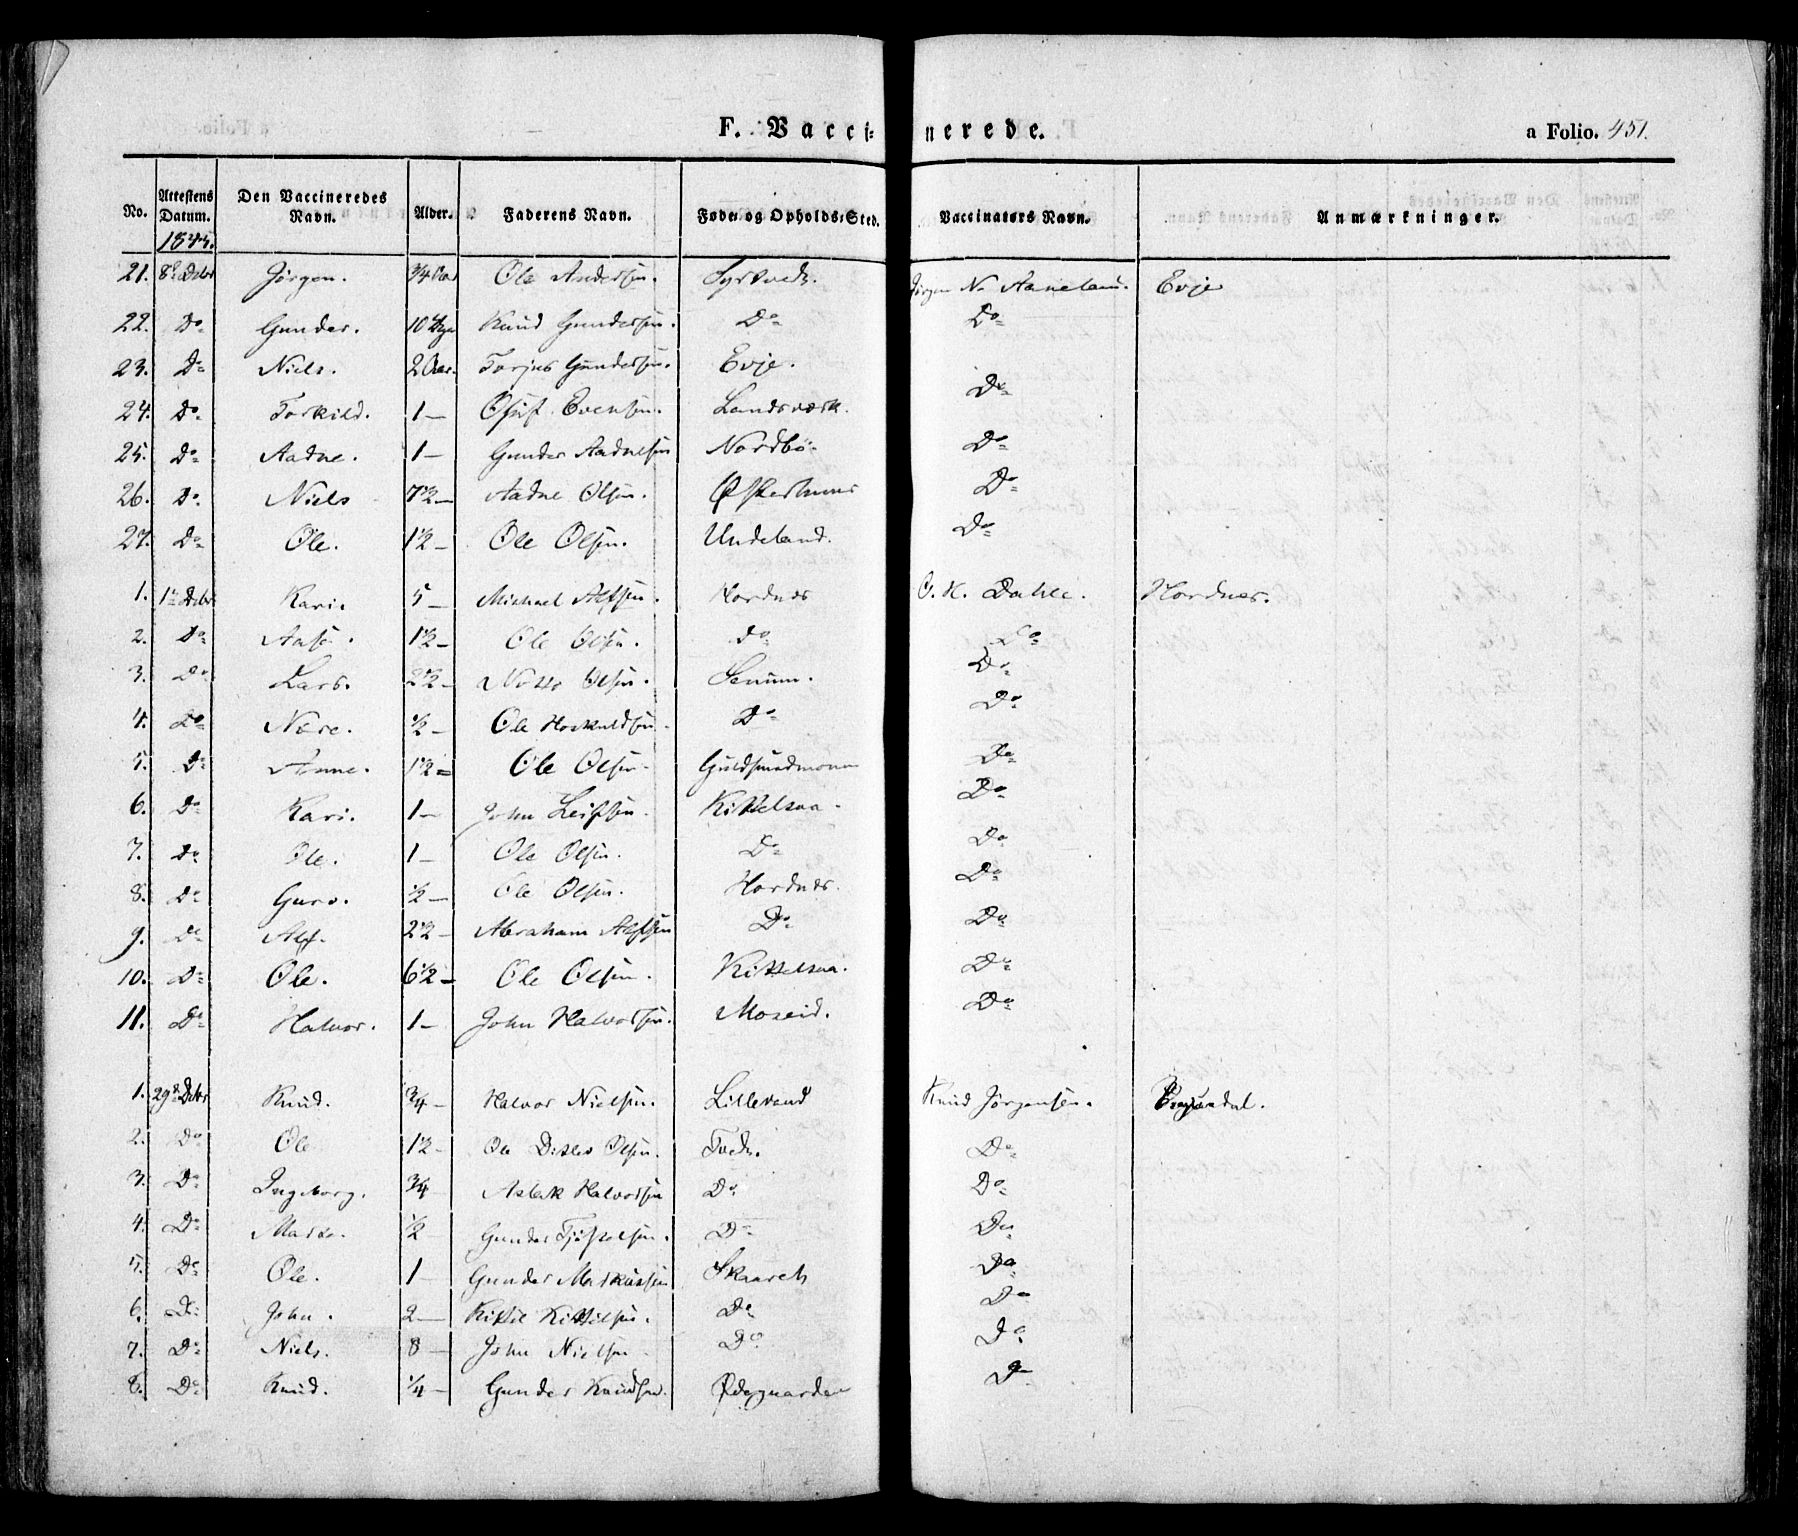 F. Vacci- nerede. a Folio. 451.
No. Attestens Datum. Den Vaccineredes Navn. Alder. Faderens Navn. Føde- og Opholds-Sted. Vaccinatørs Navn. Anmærkninger.
21. Jørgen. 3/4 Ole Andersen. Syrtveds. Jørgen N. Aaneland. Evje
22. Do Gunder. 10 Knud Gundersen. Do Do
23. Do Niels. 2 Aar. Torjus Gundersen. Evje. Do
24. Do Torkild. 1 — Evensen. Landsværk.
25. Do Aadne. 1 — Gunder Aadnesen Nordbø. Do
26. Do Niels 7 1/2 — Aadne Olsen. Do
27. Do Ole. 1 1/2 — Ole Olsen. Undeland. Do
1. 1ste Dcbr Kari. 5 — Michael Alfsen. Hordnes O. K. Dahle. Hordnes.
2. Do Aase. 1 1/2 — Ole Olsen. do Do
3. Do Lars. 2 1/2 — Notto Olsen. Senum. Do
4. Do Nære. 1/2 — Ole Hoskuldsen. Do Do
5. Do Anne. 1 1/2 — Ole Olsen. Guldsmedmoen Do
6. Do Kari. 1 — John Leifsen. Kittelsaa. Do
7. Do Ole. 1 — Ole Olsen. Do Do
8. Do Guro. 1/2 — Ole Olsen. Hordnes. Do
9. Do Alf. 2 1/2 — Abraham Alfsen Do Do
10. Do Ole. 6 1/2 — Ole Olsen. Kittelsaa. Do
11. Do Halvor. 1 — John Halvorsen. Moseid. Do
1. 29de Dcbr Knud. 3/4 — Halvor Nielsen. Lillevand Knud Jørgensen.
2. Do Ole 1 1/2 — Ole Ditlev Olsen. Tveds. Do
3. Do Ingeborg. 3/4 Aslak Halvorsen Do Do
4. Do Marte. 1/2 Gunder Tjøstolsen. Do Do
5. Do Ole. 1 — Gunder Markussen Skaareh Do
6. Do John. 2 — Kittil Kittilsen. Do Do
7. Do Niels. 8 — John Nielsen Do Do
8. Do Knud. 1/4 — Gunder Knudsen. Ødegaarden Do